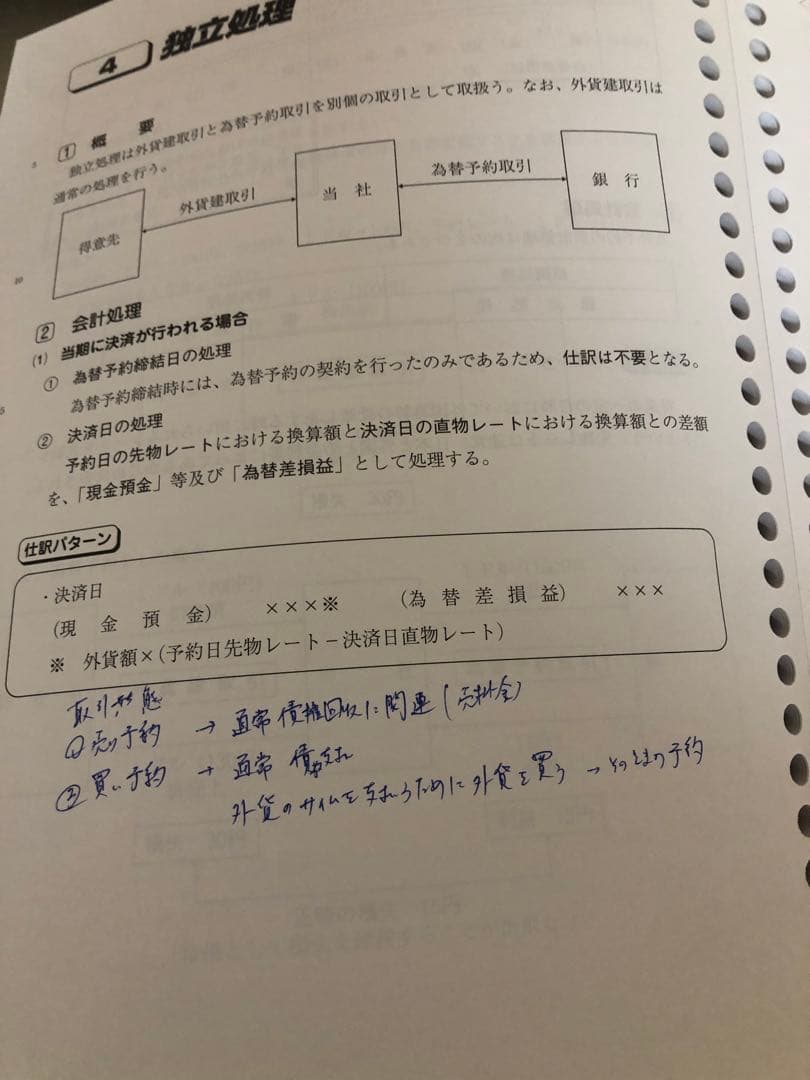 4 独立処理
1 概 要
独立処理は外貨建取引と為替予約取引を別個の取引として取扱う。なお、外貨建取引は
5
通常の処理を行う。
得意先
外貨建取引
当 社
為替予約取引
銀 行
10
2 会計処理
(1) 当期に決済が行われる場合
① 為替予約締結日の処理
為替予約締結時には、為替予約の契約を行ったのみであるため、仕訳は不要となる。
5
② 決済日の処理
予約日の先物レートにおける換算額と決済日の直物レートにおける換算額との差額
を、「現金預金」等及び「為替差損益」として処理する。
仕訳パターン
・決済日
(現 金 預 金) ×××※ (為 替 差 損 益) ×××
※ 外貨額×(予約日先物レート−決済日直物レート)
取引形態
①売り予約 → 通常債権回収に関連(売掛金)
②買い予約 → 通常 債務支払
外貨の を支払うために外貨を買う → の予約